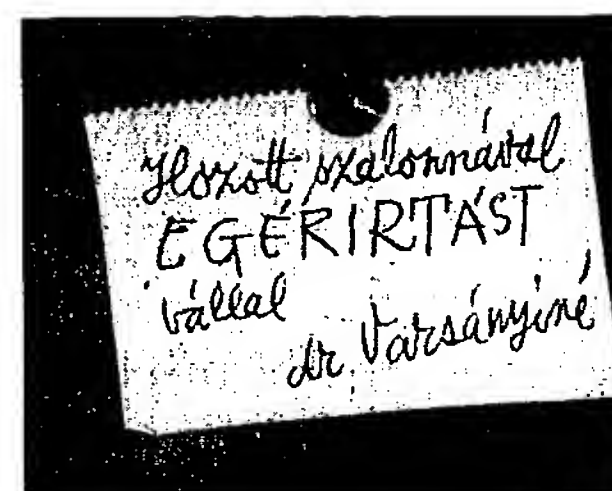 Hozott szalonnával
EGÉRIRTÁST
vállal
dr Varsányiné